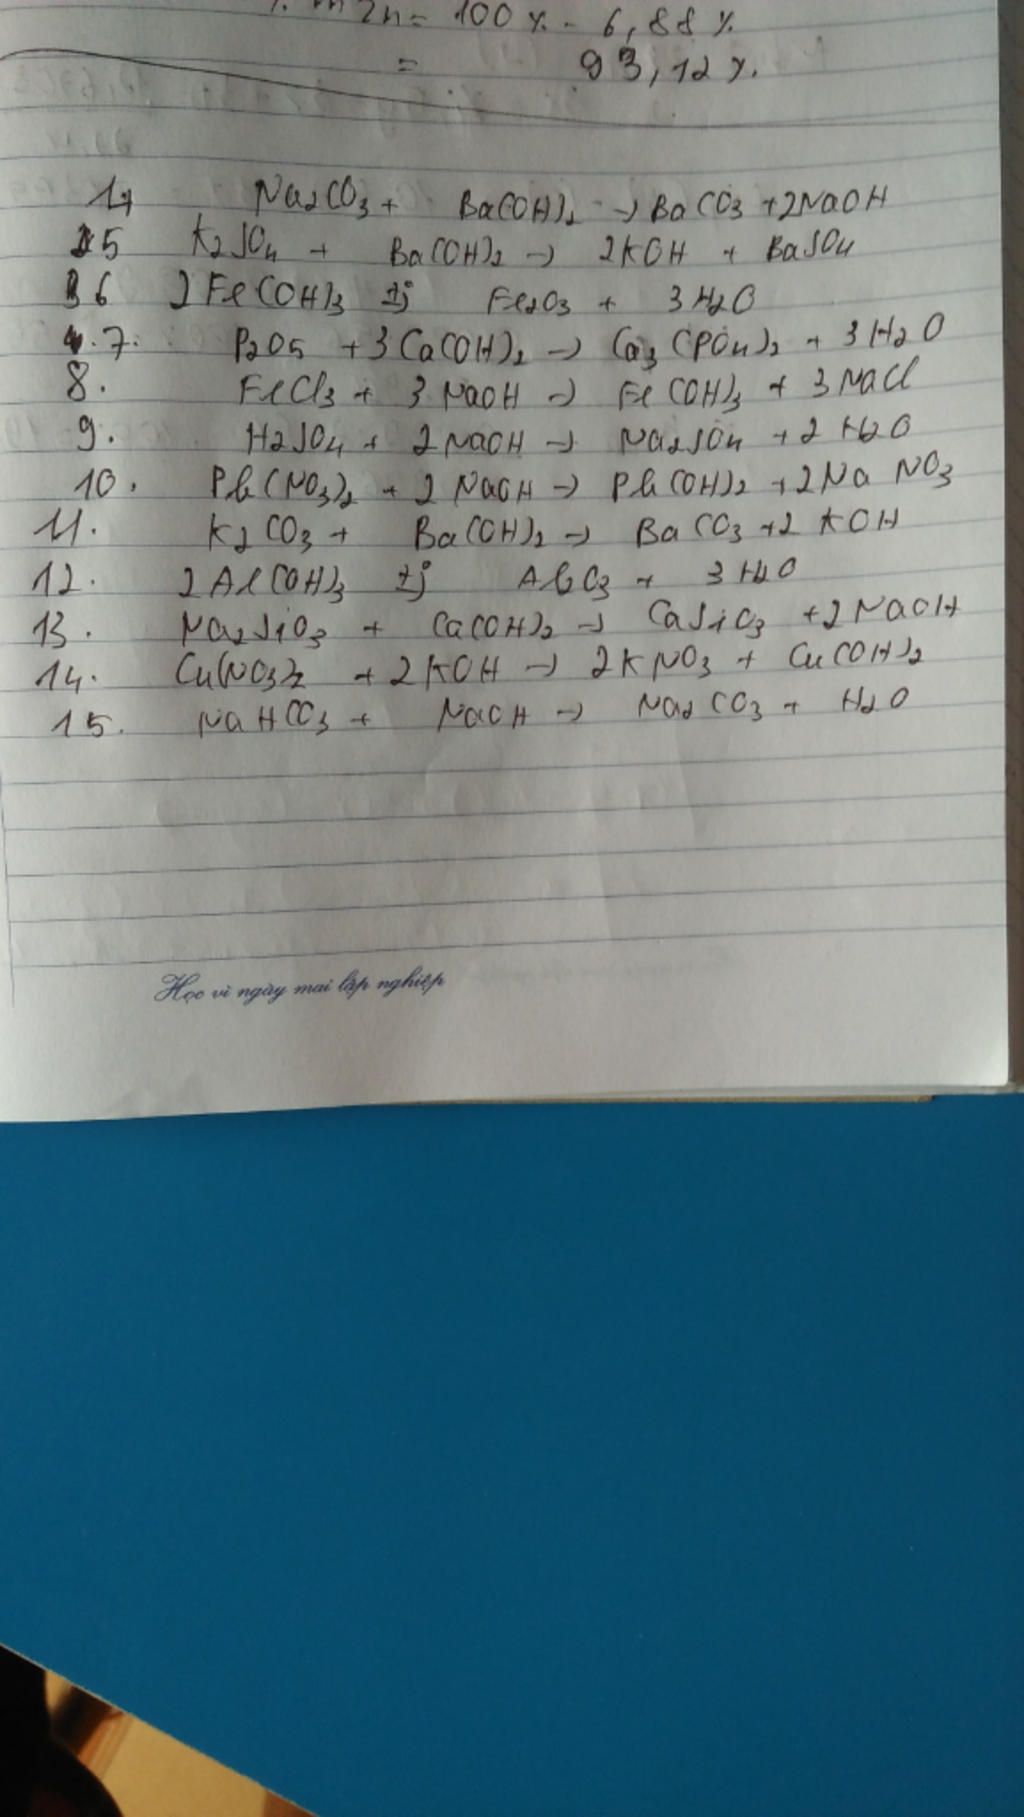 % m Zn = 100 % - 6,88 %
= 93,12 %.
14 Na2CO3 + Ba(OH)2 → BaCO3 + 2NaOH
5 K2SO4 + Ba(OH)2 → 2KOH + BaSO4
6 2Fe(OH)3 Fe2O3 + 3H2O
7. P2O5 + 3Ca(OH)2 → Ca3(PO4)2 + 3H2O
8. FeCl3 + 3NaOH → Fe(OH)3 + 3NaCl
9. H2SO4 + 2NaOH → Na2SO4 + 2H2O
10. Pb(NO3)2 + 2NaOH → Pb(OH)2 + 2NaNO3
11. K2CO3 + Ba(OH)2 → BaCO3 + 2KOH
12. 2Al(OH)3 Al2O3 + 3H2O
13. Na2SiO3 + Ca(OH)2 → CaSiO3 + 2NaOH
14. Cu(NO3)2 + 2KOH → 2KNO3 + Cu(OH)2
15. NaHCO3 + NaOH → Na2CO3 + H2O
Học vì ngày mai lập nghiệp